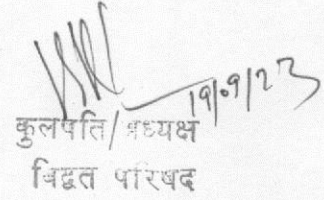 19/09/23
कुलपति/अध्यक्ष
विद्वत परिषद